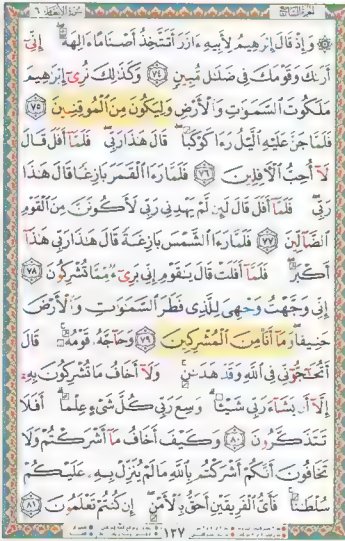 الجزء السابع سورة الأنعام ٦
۞ وَإِذْ قَالَ إِبْرَٰهِيمُ لِأَبِيهِ ءَازَرَ أَتَتَّخِذُ أَصْنَامًا ءَالِهَةً ۖ إِنِّىٓ
أَرَىٰكَ وَقَوْمَكَ فِى ضَلَٰلٍ مُّبِينٍ ﴿٧٤﴾ وَكَذَٰلِكَ نُرِىٓ إِبْرَٰهِيمَ
مَلَكُوتَ ٱلسَّمَٰوَٰتِ وَٱلْأَرْضِ وَلِيَكُونَ مِنَ ٱلْمُوقِنِينَ ﴿٧٥﴾
فَلَمَّا جَنَّ عَلَيْهِ ٱلَّيْلُ رَءَا كَوْكَبًا ۖ قَالَ هَٰذَا رَبِّى ۖ فَلَمَّآ أَفَلَ قَالَ
لَآ أُحِبُّ ٱلْءَافِلِينَ ﴿٧٦﴾ فَلَمَّا رَءَا ٱلْقَمَرَ بَازِغًا قَالَ هَٰذَا
رَبِّى ۖ فَلَمَّآ أَفَلَ قَالَ لَئِن لَّمْ يَهْدِنِى رَبِّى لَأَكُونَنَّ مِنَ ٱلْقَوْمِ
ٱلضَّآلِّينَ ﴿٧٧﴾ فَلَمَّا رَءَا ٱلشَّمْسَ بَازِغَةً قَالَ هَٰذَا رَبِّى هَٰذَآ
أَكْبَرُ ۖ فَلَمَّآ أَفَلَتْ قَالَ يَٰقَوْمِ إِنِّى بَرِىٓءٌ مِّمَّا تُشْرِكُونَ ﴿٧٨﴾
إِنِّى وَجَّهْتُ وَجْهِىَ لِلَّذِى فَطَرَ ٱلسَّمَٰوَٰتِ وَٱلْأَرْضَ
حَنِيفًا ۖ وَمَآ أَنَا۠ مِنَ ٱلْمُشْرِكِينَ ﴿٧٩﴾ وَحَآجَّهُۥ قَوْمُهُۥ ۚ قَالَ
أَتُحَٰٓجُّوٓنِّى فِى ٱللَّهِ وَقَدْ هَدَىٰنِ ۚ وَلَآ أَخَافُ مَا تُشْرِكُونَ بِهِۦٓ
إِلَّآ أَن يَشَآءَ رَبِّى شَيْـًٔا ۗ وَسِعَ رَبِّى كُلَّ شَىْءٍ عِلْمًا ۗ أَفَلَا
تَتَذَكَّرُونَ ﴿٨٠﴾ وَكَيْفَ أَخَافُ مَآ أَشْرَكْتُمْ وَلَا
تَخَافُونَ أَنَّكُمْ أَشْرَكْتُم بِٱللَّهِ مَا لَمْ يُنَزِّلْ بِهِۦ عَلَيْكُمْ
سُلْطَٰنًا ۚ فَأَىُّ ٱلْفَرِيقَيْنِ أَحَقُّ بِٱلْأَمْنِ ۖ إِن كُنتُمْ تَعْلَمُونَ ﴿٨١﴾
١٣٧